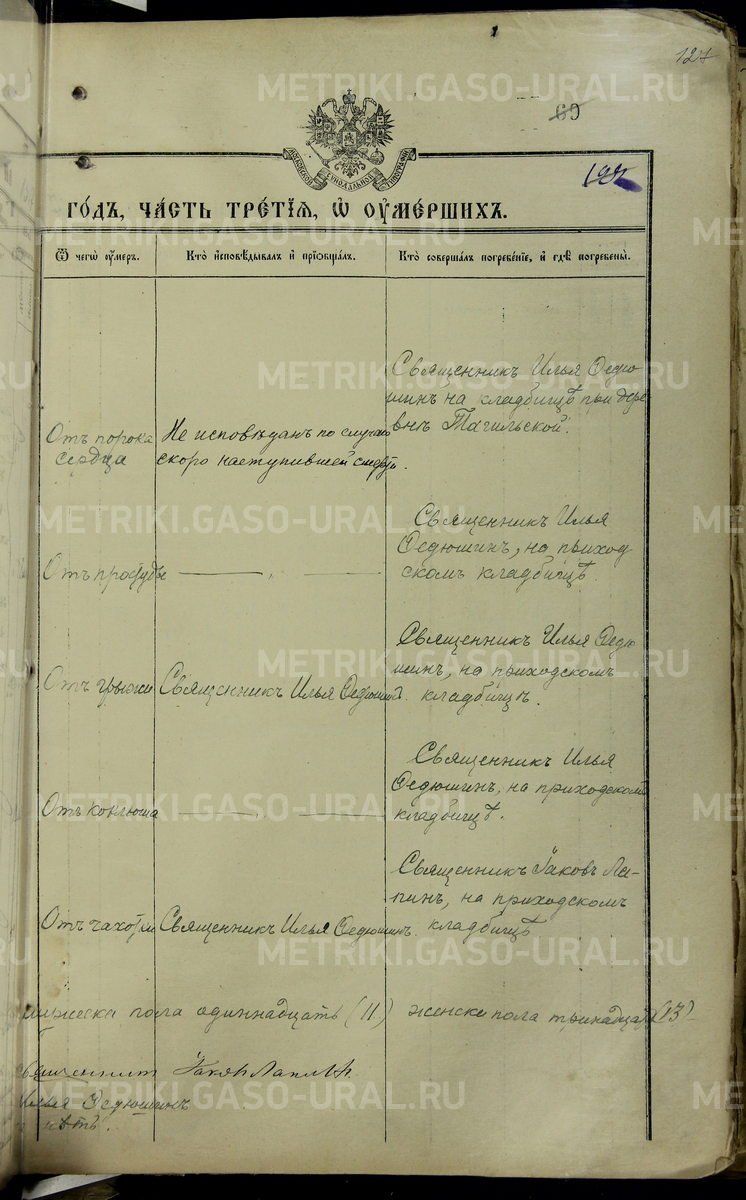 127
69
127
МОСКОВСКОЙ СѴНОДАЛЬНОЙ ТИПОГРАФІИ
ГОДЪ, ЧАСТЬ ТРЕТІЯ, Ѡ ОУМЕРШИХЪ.
Ѿ чегѡ оумеръ.
Кто исповѣдывалъ и пріобщалъ.
Кто совершалъ погребеніе, и гдѣ погребены.
Отъ порока
сердца
Не исповѣданъ по случаю
скоро наступившей смерти.
Священникъ Илья Ѳедю
шинъ на кладбищѣ при дере
внѣ Тагильской.
Отъ простуды
— „ —
Священникъ Илья
Ѳедюшинъ, на приход
скомъ кладбищѣ.
Отъ грыжи
Священникъ Илья Ѳедюшинъ
Священникъ Илья Ѳедю
шинъ, на приходскомъ
кладбищѣ.
Отъ коклюша
— „ —
Священникъ Илья
Ѳедюшинъ, на приходскомъ
кладбищѣ.
Отъ чахотки
Священникъ Илья Ѳедюшинъ.
Священникъ Іаковъ Ла-
пинъ, на приходскомъ
кладбищѣ
мужеска пола одиннадцать (11) женска пола тринадцать (13)
Священникъ Іаковъ Лапинъ
Илья Ѳедюшинъ
METRIKI.GASO-URAL.RU